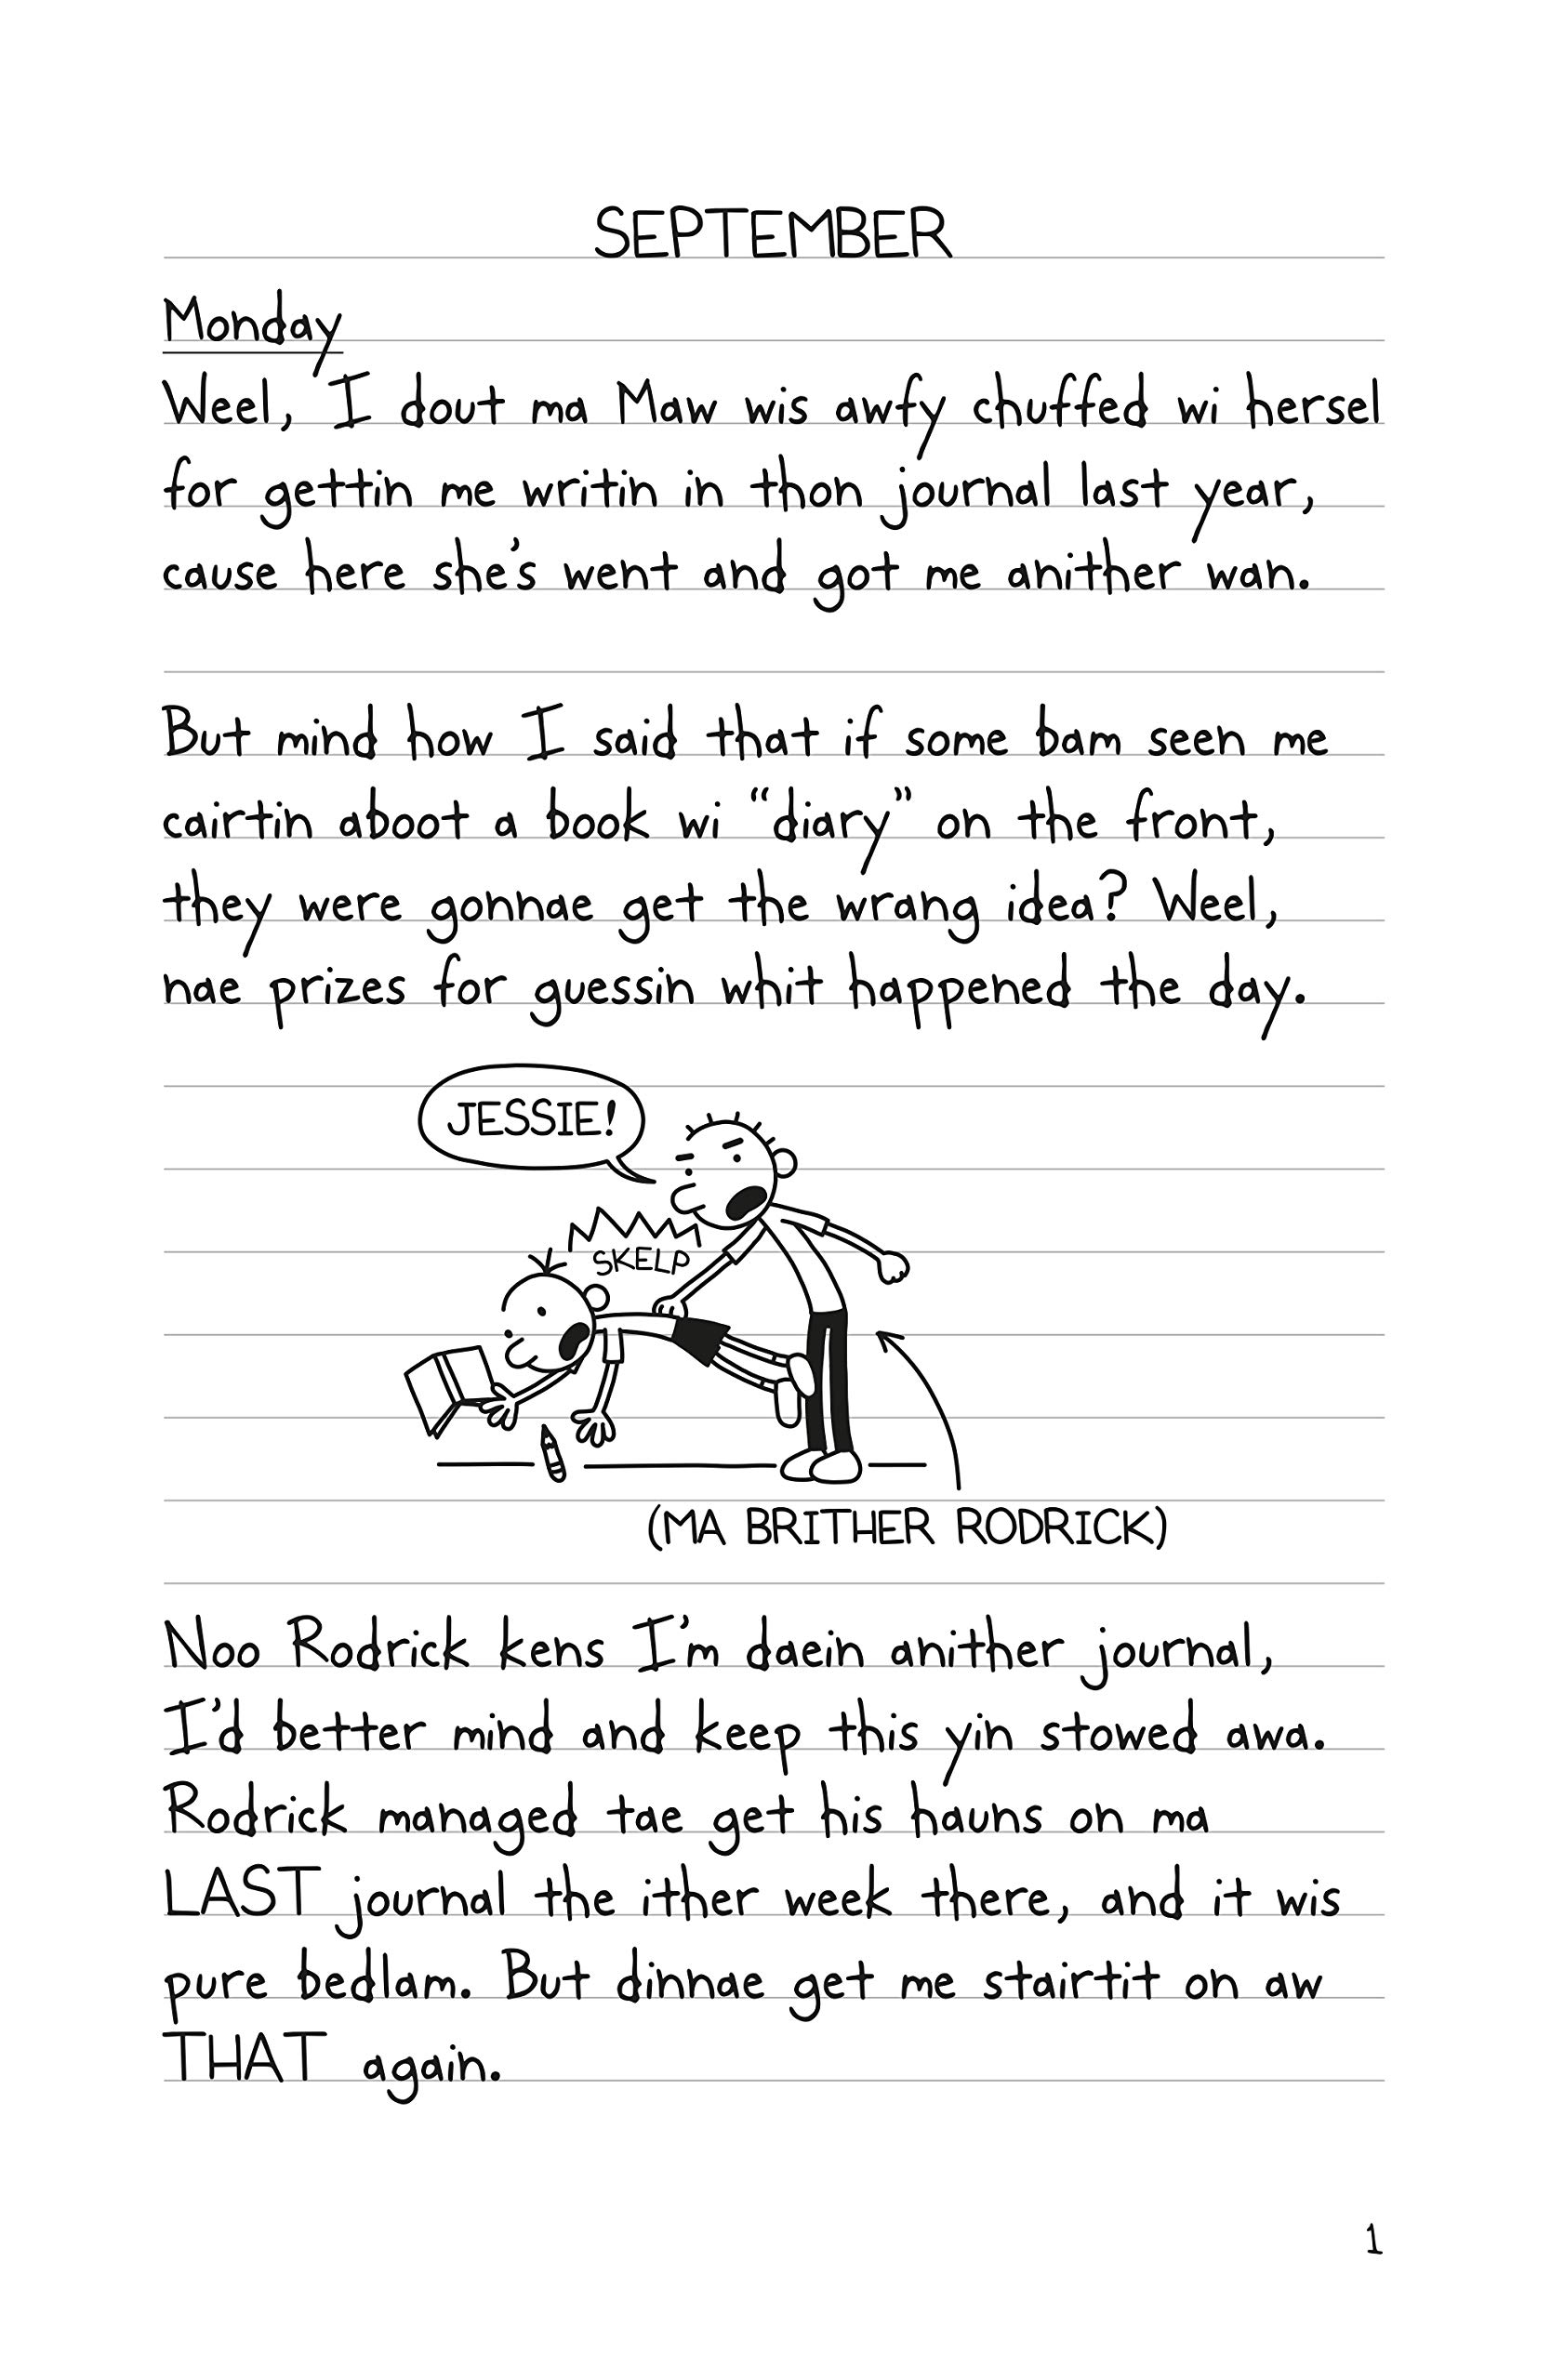 SEPTEMBER
Monday
Weel, I dout ma Maw wis awfy chuffed wi hersel
for gettin me writin in thon journal last year,
cause here she's went and got me anither wan.
But mind how I said that if some bam seen me
cairtin aboot a book wi “diary” on the front,
they were gonnae get the wrang idea? Weel,
nae prizes for guessin whit happened the day.
JESSIE!
SKELP
(MA BRITHER RODRICK)
Noo Rodrick kens I'm daein anither journal,
I'd better mind and keep this yin stowed awa.
Rodrick managed tae get his hauns on ma
LAST journal the ither week there, and it wis
pure bedlam. But dinnae get me stairtit on aw
THAT again.
1